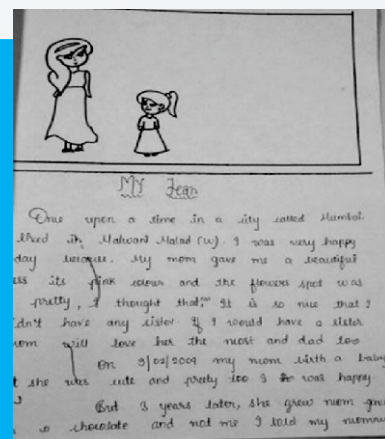 My Fear
Once upon a time in a city called Mumbai.
lived in Malwani Malad (W). I was very happy
day because. My mom gave me a beautiful
its pink colour and the flowers spot was
pretty, I thought that "It is so nice that I
didn't have any sister. If I would have a sister
mom will love her the most and dad too
On 9/02/2009 my mom birth a baby
she was cute and pretty too I was happy.
But 3 years later, she grew mom gave
chocolate and not me I told my mommy